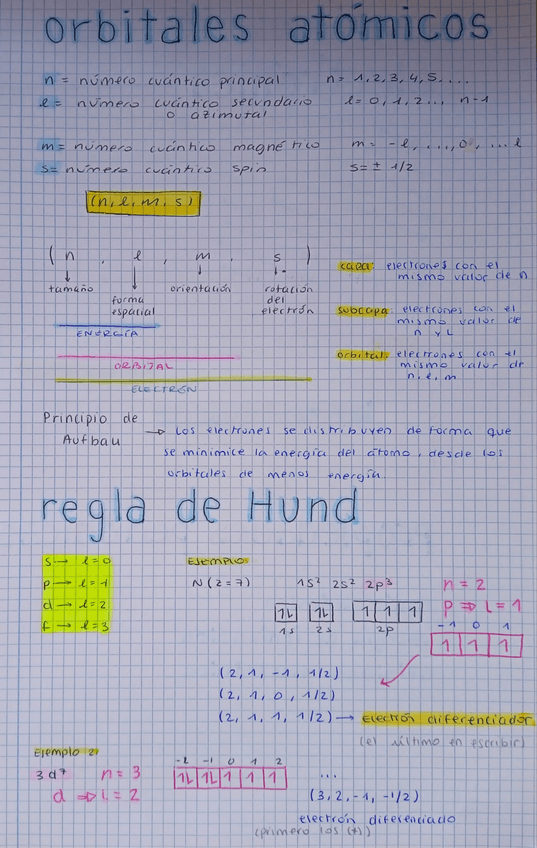 orbitales atómicos
n = número cuántico principal n = 1, 2, 3, 4, 5....
l = número cuántico secundario l = 0, 1, 2... n-1
o azimutal
m = número cuántico magnético m = -l, ...., 0, ... l
s = número cuántico spin s = ± 1/2
(n, l, m, s)
( n , l , m , s )
tamaño
forma
espacial
orientación
rotación
del
electrón
ENERGÍA
ORBITAL
ELECTRÓN
capa: electrones con el
mismo valor de n
subcapa: electrones con el
mismo valor de
n y L
orbital: electrones con el
mismo valor de
n, l, m
Principio de
Aufbau
→ Los electrones se distribuyen de forma que
se minimice la energía del átomo, desde los
orbitales de menos energía.
regla de Hund
s → l=0
p → l=1
d → l=2
f → l=3
Ejemplo:
N (z=7) 1s² 2s² 2p³
1L 1L 1 1 1
1s 2s 2p
n = 2
p ⇒ L = 1
-1 0 1
1 1 1
(2, 1, -1, 1/2)
(2, 1, 0, 1/2)
(2, 1, 1, 1/2) → electrón diferenciador
(el último en escribir)
Ejemplo 2:
3d⁷ n = 3
d ⇒ L = 2
-2 -1 0 1 2
1L 1L 1 1 1
...
(3, 2, -1, -1/2)
electrón diferenciado
(primero los (+))